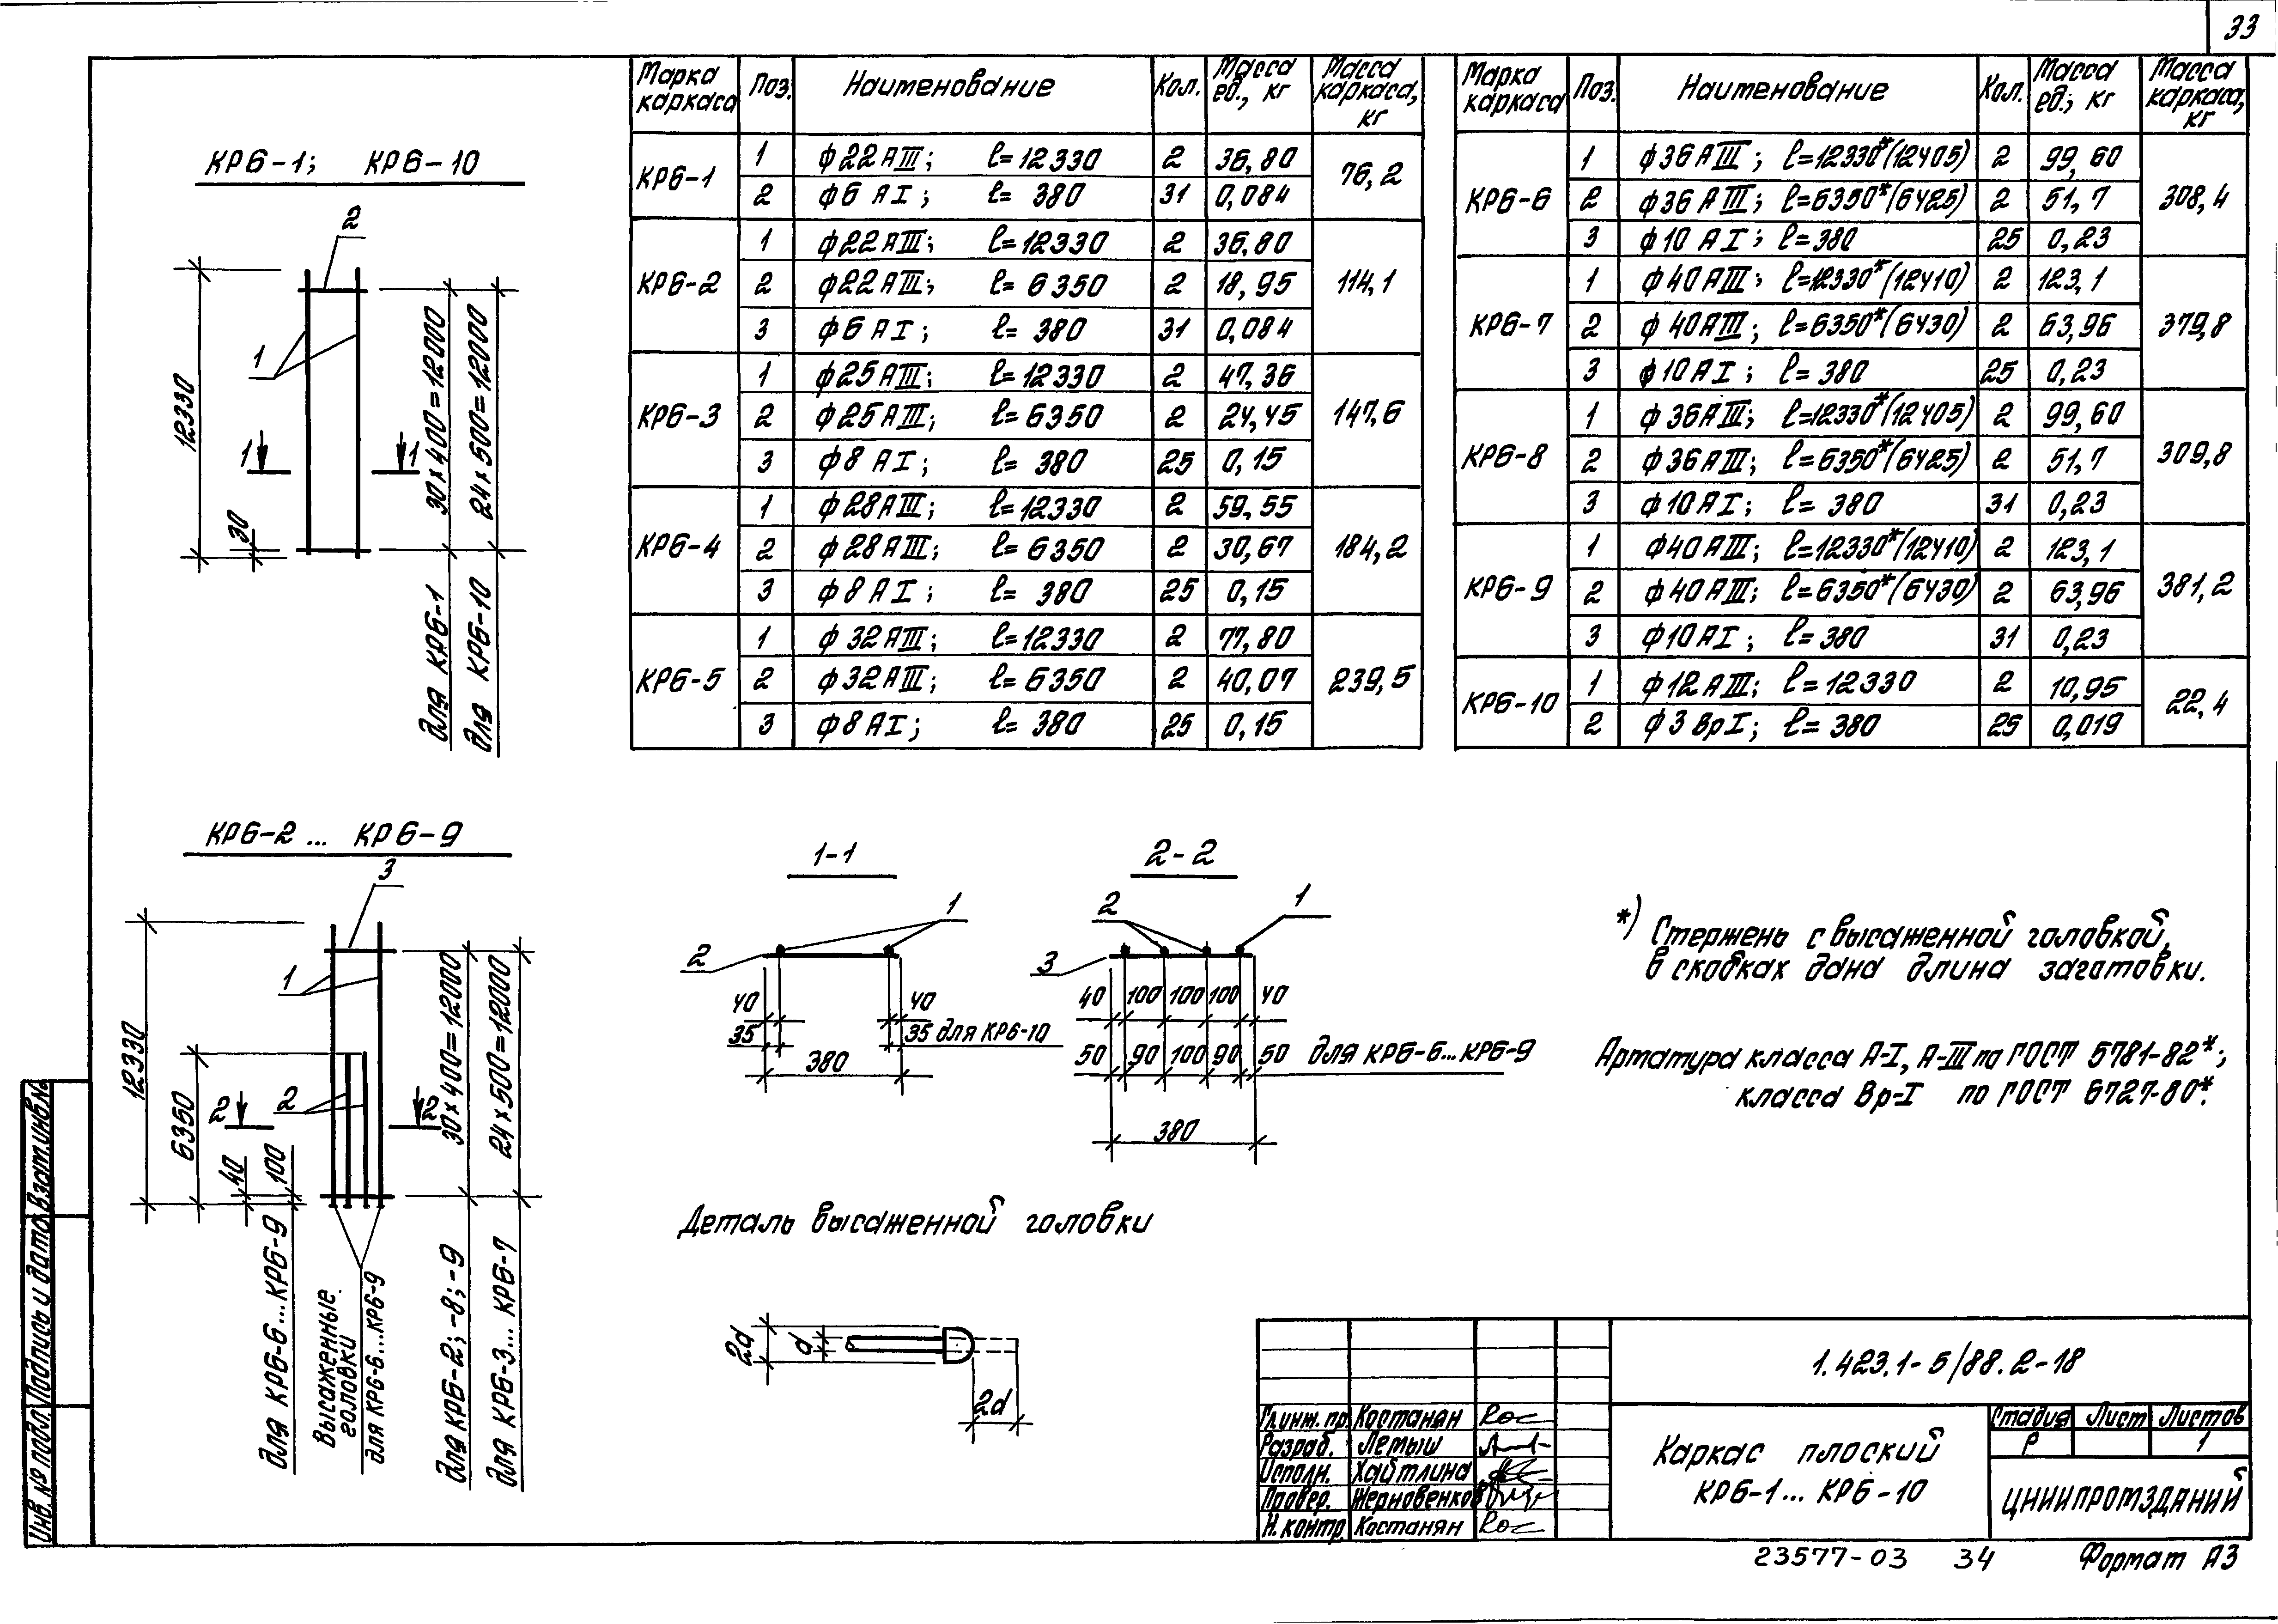 33
КР6-1; КР6-10
2
1
12330
30
1 1
30×400=12000
24×500=12000
для КР6-1
для КР6-10
Марка каркаса Поз. Наименование Кол. Масса ед., кг Масса каркаса, кг
КР6-1 1 ф22АIII; ℓ=12330 2 36,80 76,2
2 ф6 АI; ℓ= 380 31 0,084
КР6-2 1 ф22АIII; ℓ=12330 2 36,80 114,1
2 ф22АIII; ℓ= 6350 2 18,95
3 ф6 АI; ℓ= 380 31 0,084
КР6-3 1 ф25АIII; ℓ=12330 2 47,36 147,6
2 ф25АIII; ℓ= 6350 2 24,45
3 ф8 АI; ℓ= 380 25 0,15
КР6-4 1 ф28АIII; ℓ=12330 2 59,55 184,2
2 ф28АIII; ℓ= 6350 2 30,67
3 ф8 АI; ℓ= 380 25 0,15
КР6-5 1 ф32АIII; ℓ=12330 2 77,80 239,5
2 ф32АIII; ℓ= 6350 2 40,07
3 ф8АI; ℓ= 380 25 0,15
Марка каркаса Поз. Наименование Кол. Масса ед., кг Масса каркаса, кг
КР6-6 1 ф36АIII; ℓ=12330*(12405) 2 99,60 308,4
2 ф36АIII; ℓ=6350*(6425) 2 51,7
3 ф10 АI; ℓ=380 25 0,23
КР6-7 1 ф40АIII; ℓ=12330*(12410) 2 123,1 379,8
2 ф40АIII; ℓ=6350*(6430) 2 63,96
3 ф10АI; ℓ= 380 25 0,23
КР6-8 1 ф36АIII; ℓ=12330*(12405) 2 99,60 309,8
2 ф36АIII; ℓ=6350*(6425) 2 51,7
3 ф10АI; ℓ= 380 31 0,23
КР6-9 1 ф40АIII; ℓ=12330*(12410) 2 123,1 381,2
2 ф40АIII; ℓ=6350*(6430) 2 63,96
3 ф10АI; ℓ=380 31 0,23
КР6-10 1 ф12АIII; ℓ=12330 2 10,95 22,4
2 ф3 ВрI; ℓ= 380 25 0,019
КР6-2 ... КР6-9
3
1
2
12330
6350
40
100
2 2
30×400=12000
24×500=12000
для КР6-6...КР6-9
Высаженные
головки
для КР6-6...КР6-9
для КР6-2; -8; -9
для КР6-3... КР6-7
1-1
1
2
40 40
35 35 для КР6-10
380
2-2
2 1
3
40 100 100 100 40
50 90 100 90 50 для КР6-6...КР6-9
380
*) Стержень с высаженной головкой,
в скобках дана длина заготовки.
Арматура класса А-I, А-III по ГОСТ 5781-82*;
класса Вр-I по ГОСТ 6727-80*.
Деталь высаженной головки
2d
d
2d
1.423.1-5/88.2-18
Гл.инж.пр. Костанян
Разраб. Летыш
Исполн. Хайтлина
Провер. Жерновенков
Н.контр Костанян
Каркас плоский
КР6-1... КР6-10
Стадия Лист Листов
Р 1
ЦНИИПРОМЗДАНИЙ
23577-03 34 Формат А3
Инв. № подл. Подпись и дата Взам.инв.№